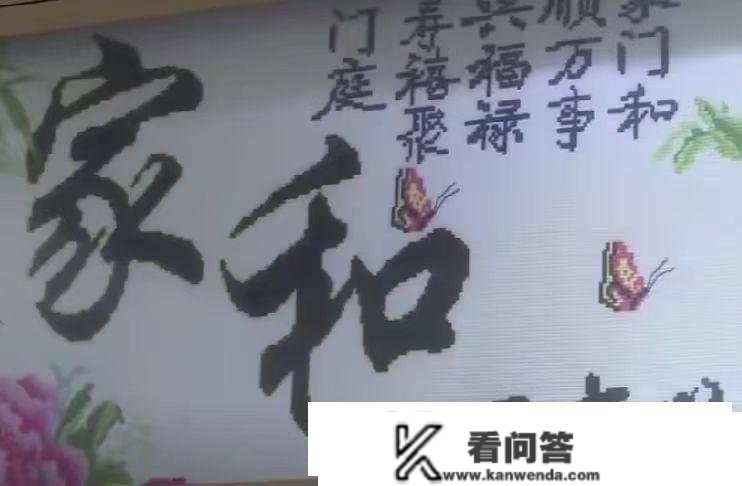 家和
家门和
顺万事
兴福禄
寿禧聚
门庭
看问答
www.kanwenda.com